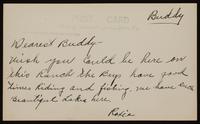 POST CARD
Buddy
Dearest Buddy-
Wish you could be here on
this Ranch the Boys have good
times Riding and fishing, we have such
Beautiful Lakes here.